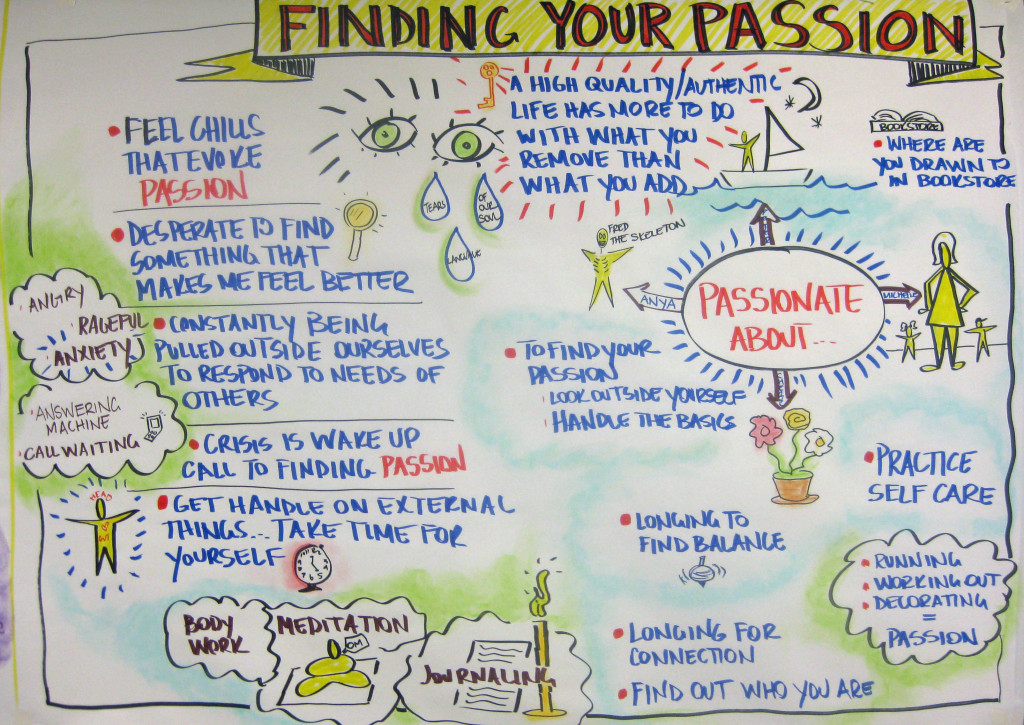 FINDING YOUR PASSION
• FEEL CHILLS
THAT EVOKE
PASSION
• DESPERATE TO FIND
SOMETHING THAT
MAKES ME FEEL BETTER
• ANGRY
RAGEFUL
ANXIETY
• CONSTANTLY BEING
PULLED OUTSIDE OURSELVES
TO RESPOND TO NEEDS OF
OTHERS
• ANSWERING
MACHINE
• CALL WAITING
• CRISIS IS WAKE UP
CALL TO FINDING PASSION
HEAD
• GET HANDLE ON EXTERNAL
THINGS... TAKE TIME FOR
YOURSELF
BODY
WORK
MEDITATION
OM
JOURNALING
TEARS
OF
OUR
SOUL
LANGUAGE
A HIGH QUALITY/AUTHENTIC
LIFE HAS MORE TO DO
WITH WHAT YOU
REMOVE THAN
WHAT YOU ADD
BOOKSTORE
• WHERE ARE
YOU DRAWN TO
IN BOOKSTORE
FRED
THE SKELETON
ANYA
PASSIONATE
ABOUT...
MICHELLE
• TO FIND YOUR
PASSION
LOOK OUTSIDE YOURSELF
HANDLE THE BASICS
• PRACTICE
SELF CARE
• LONGING TO
FIND BALANCE
• RUNNING
• WORKING OUT
• DECORATING
=
PASSION
• LONGING FOR
CONNECTION
• FIND OUT WHO YOU ARE